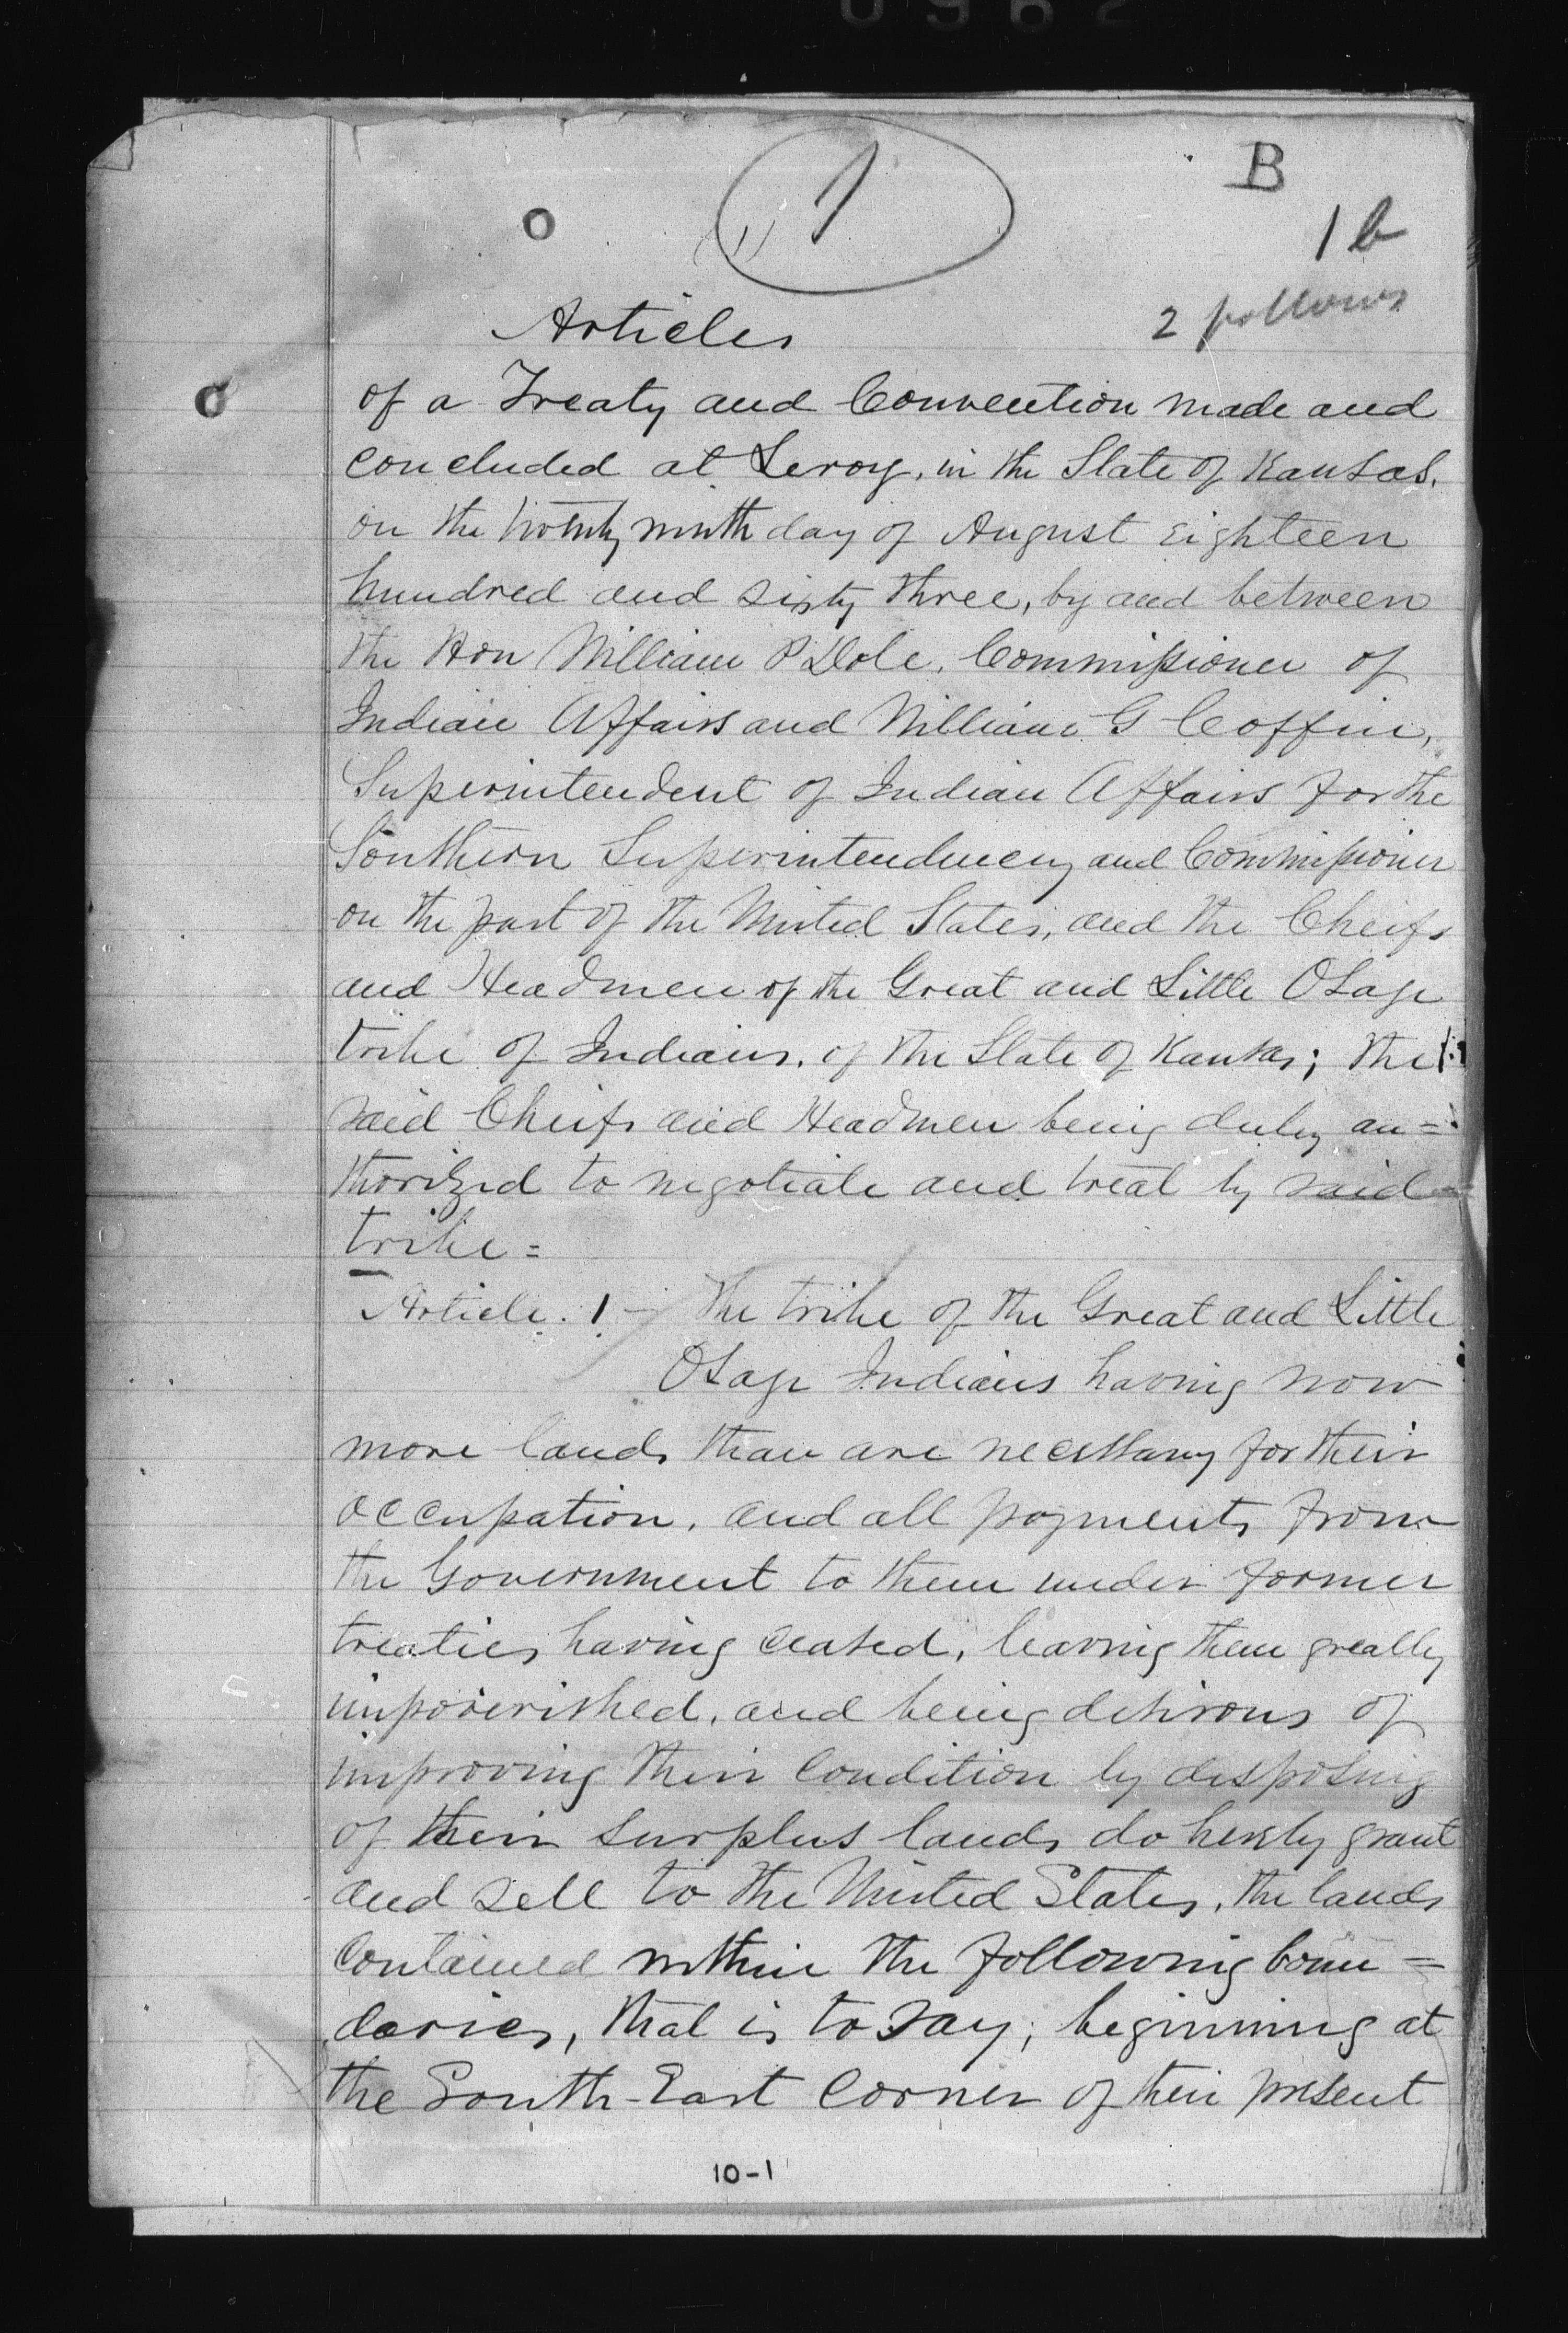 0962
B
1
(1)
1 b
2 follows
Articles
of a Treaty and Convention made and
concluded at Leroy, in the State of Kansas,
on the twenty ninth day of August Eighteen
hundred and sixty three, by and between
the Hon William P Dole, Commissioner of
Indian Affairs and William G Coffin,
Superintendent of Indian Affairs for the
Southern Superintendency and Commissioner
on the part of the United States, and the Cheifs
and Headmen of the Great and Little Osage
tribe of Indians, of the State of Kansas; the
said Cheifs and Headmen being duly au=
thorized to negotiate and treat by said
tribe =
Article. 1 – The tribe of the Great and Little
Osage Indians having now
more lands than are necessary for their
occupation, and all payments from
the Government to them under former
treaties having ceased, leaving them greatly
impoverished, and being desirous of
improving their condition by disposing
of their surplus lands do hereby grant
and sell to the United States, the lands
contained within the following boun=
daries, that is to say; beginning at
the South-East Corner of their present
10-1